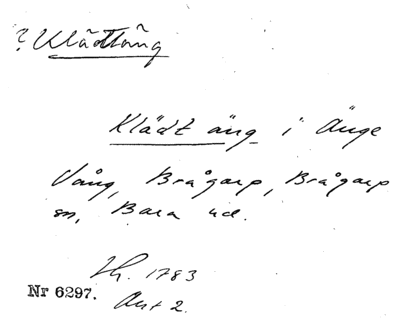 ? Klädtäng
Klädt äng i Änge
Vång, Brågarp, Brågarp
sn, Bara hd.
Lh. 1783
Nr 6297.
Akt 2.